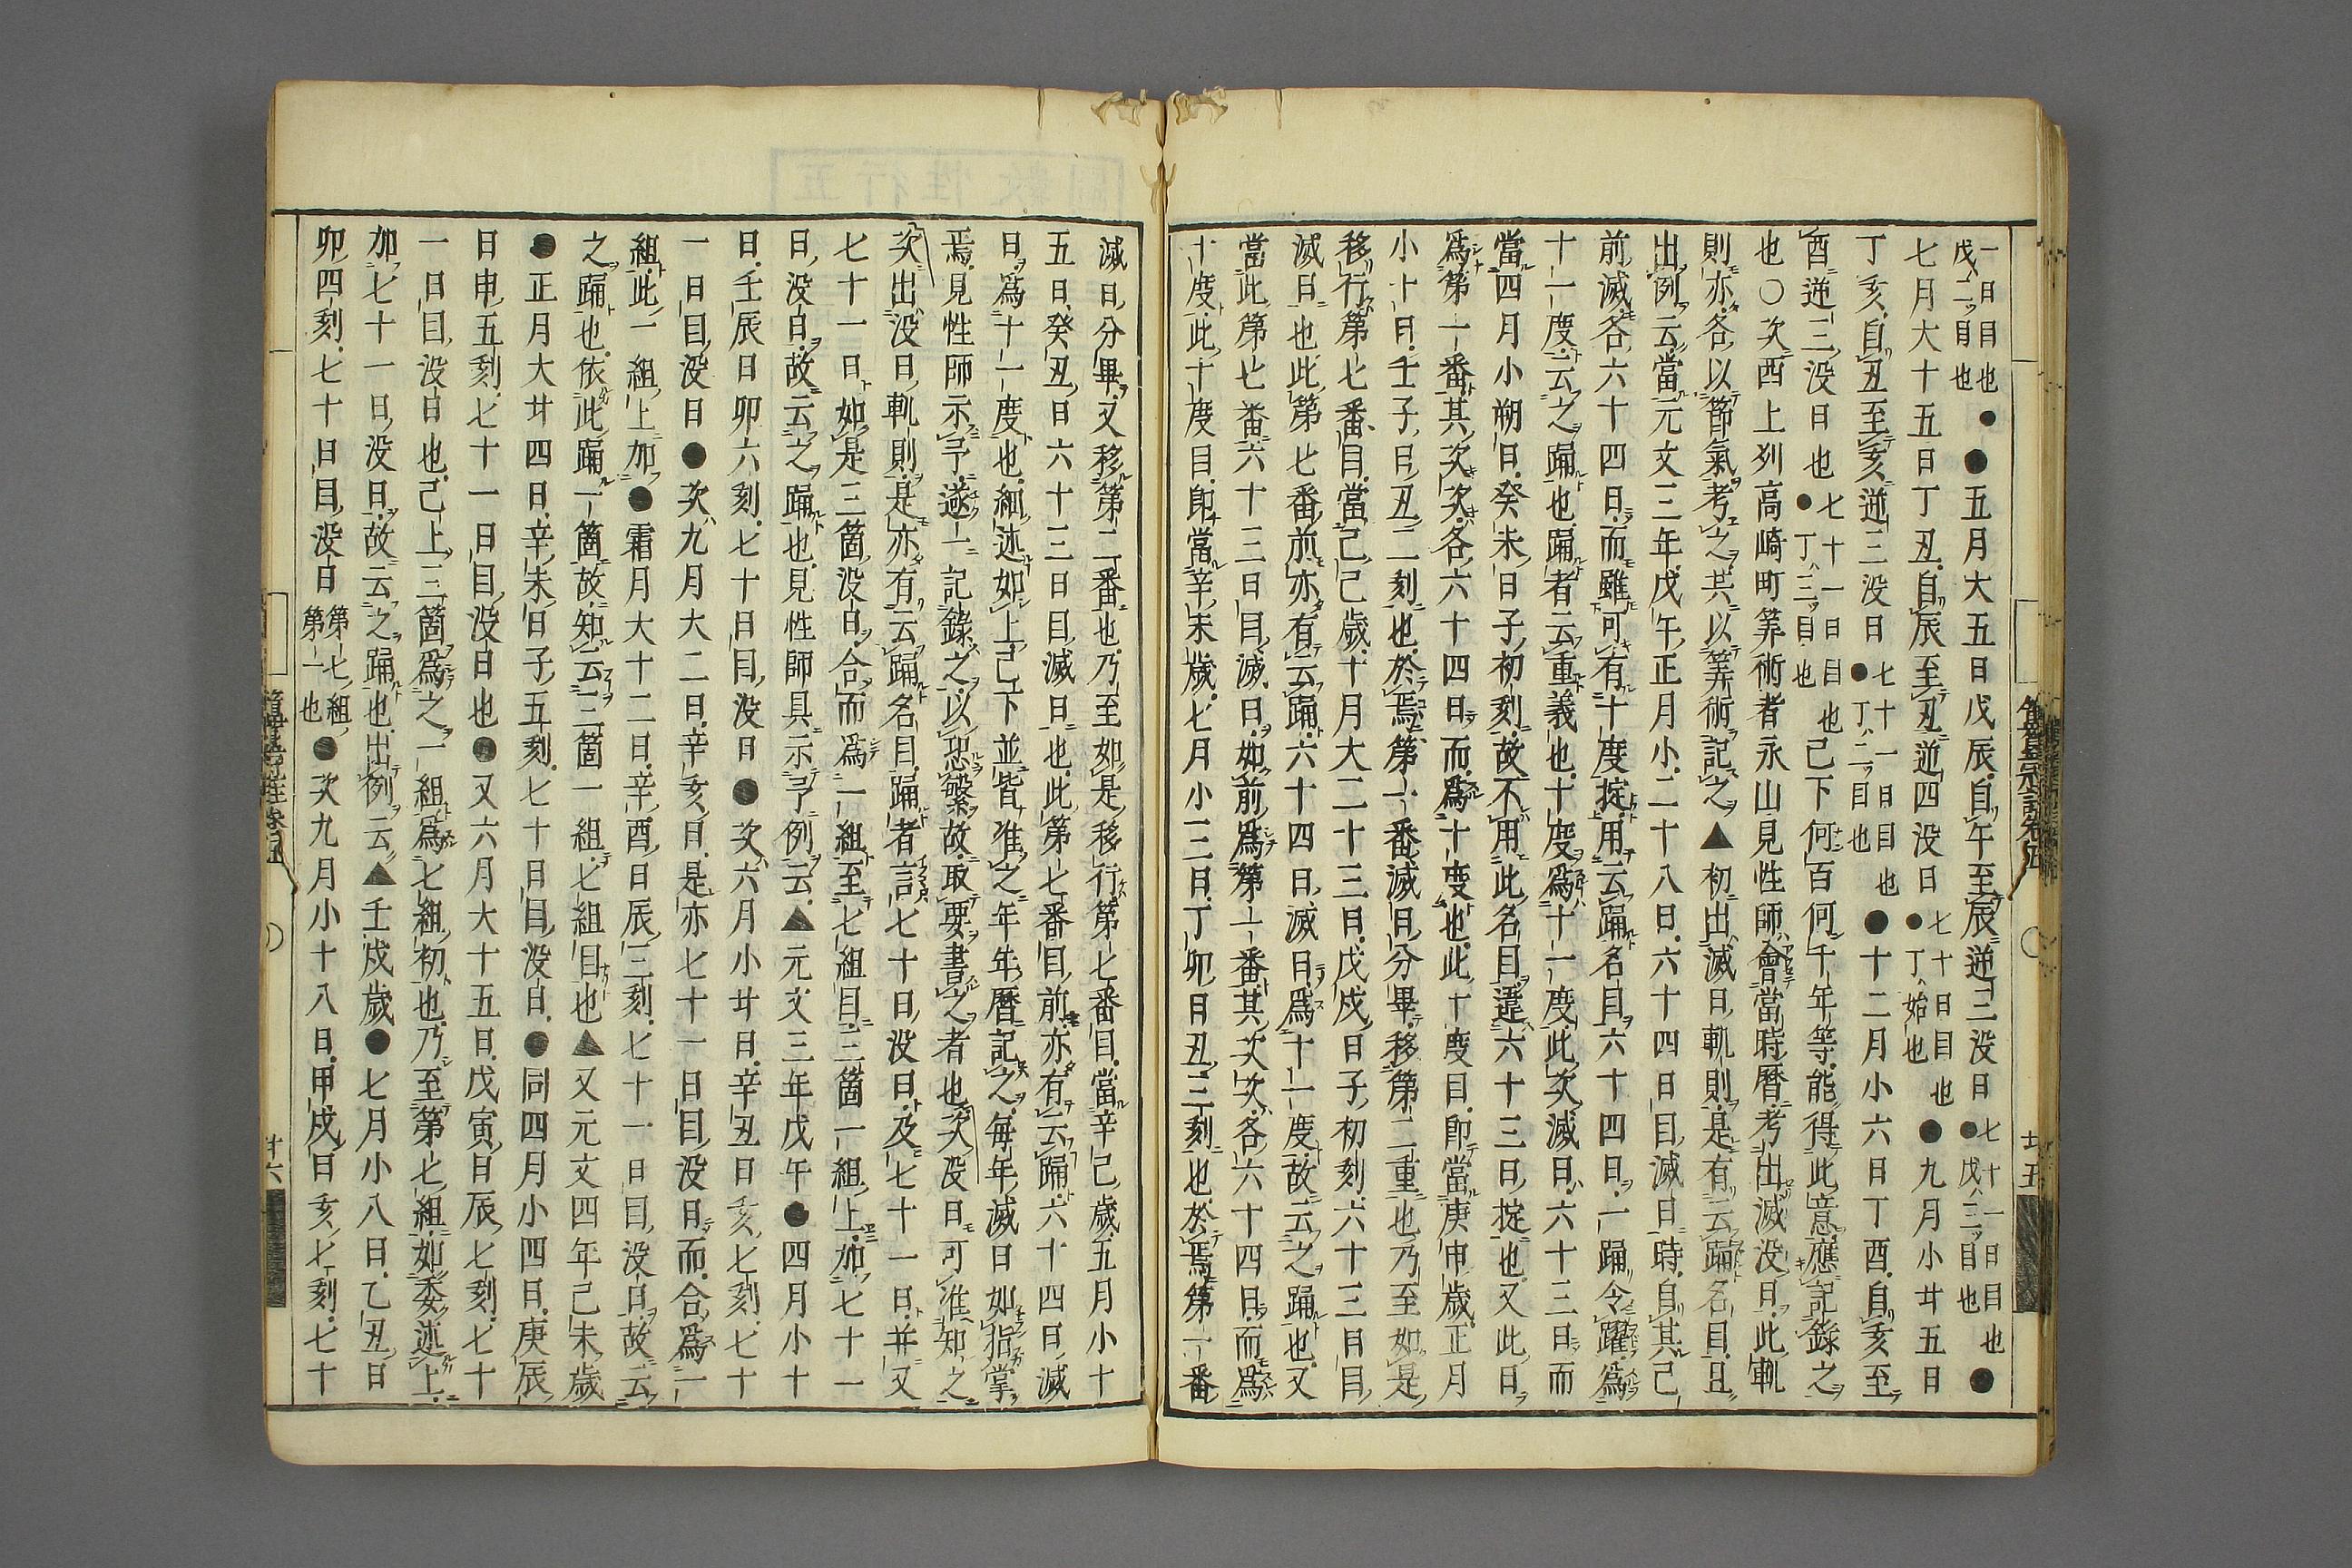 一日目也
戊ハ二ツ目也
●五月大五日戊辰自午至辰逆三没日
七十一日目也
●戊ハ三ツ目也
●
七月大十五日丁丑自辰至丑逆四没日
七十日目也
●丁ハ始也
●九月小廿五日
丁亥自丑至亥逆三没日
七十一日目也
●丁ハ二ツ目也
●十二月小六日丁酉自亥至
酉逆三没日也
七十一日目也
●丁ハ三ツ目也
己下何百何千年等能得此意應記錄之
也〇次西上列高崎町筭術者永山見性師會當時暦考出滅没日此軌
則亦各以節氣考之共以筭術記之▲初出滅日軌則是有云踊名目且
出例云當元文三年戊午正月小二十八日六十四日目滅日時自其己
前滅各六十四日而雖可有十度掟用云踊名目六十四日一踊令躍爲
十一度云之踊也踊者云重義也十度爲十一度此次滅日六十三日而
當四月小朔日癸未日子初刻故不用此名目違六十三日掟也又此日
爲第一番其次次各六十四日而爲十度也此十度目即當庚申歲正月
小十日壬子日丑二刻也於焉第一番滅日分畢移第二重也乃至如是
移行第七番目當己己歲十月大二十三日戊戌日子初刻六十三日目
滅日也此第七番前亦有云踊六十四日滅日爲十一度故云之踊也又
當此第七番六十三日目滅日如前爲第一番其次次各六十四日而爲
十度此十度目即當辛未歲七月小三日丁卯日丑三刻也於焉第一番
滅日分畢又移第二番也乃至如是移行第七番目當辛己歲五月小十
五日癸丑日六十三日目滅日也此第七番目前亦有云踊六十四日滅
日爲十一度也細述如上己下並皆准之年年暦記之每年滅日如指掌
焉見性師示予遂一記錄之以恐繁故取要書之者也次没日可准知之
次出没日軌則是亦有云踊名目踊者言七十日没日及七十一日并又
七十一日如是三箇没日合而爲一組至七組目三箇一組上加七十一
日没日故云之踊也見性師具示予例云▲元文三年戊午●四月小十
日壬辰日卯六刻七十日目没日●次六月小廿日辛丑日亥七刻七十
一日目没日●次九月大二日辛亥日是亦七十一日目没日而合爲一
組此一組上加●霜月大十二日辛酉日辰三刻七十一日目没日故云
之踊也依此踊一箇故知云二箇一組七組目也▲又元文四年己未歲
●正月大廿四日辛未日子五刻七十日目没日●同四月小四日庚辰
日申五刻七十一日目没日也●又六月大十五日戊寅日辰七刻七十
一日目没日也己上三箇爲之一組爲七組初也乃至第七組如委述上
加七十一日没日故云之踊也出例云▲壬戌歲●七月小八日乙丑日
卯四刻七十日目没日
第七組
第一也
●次九月小十八日甲戌日亥七刻七十
廿五
廿六